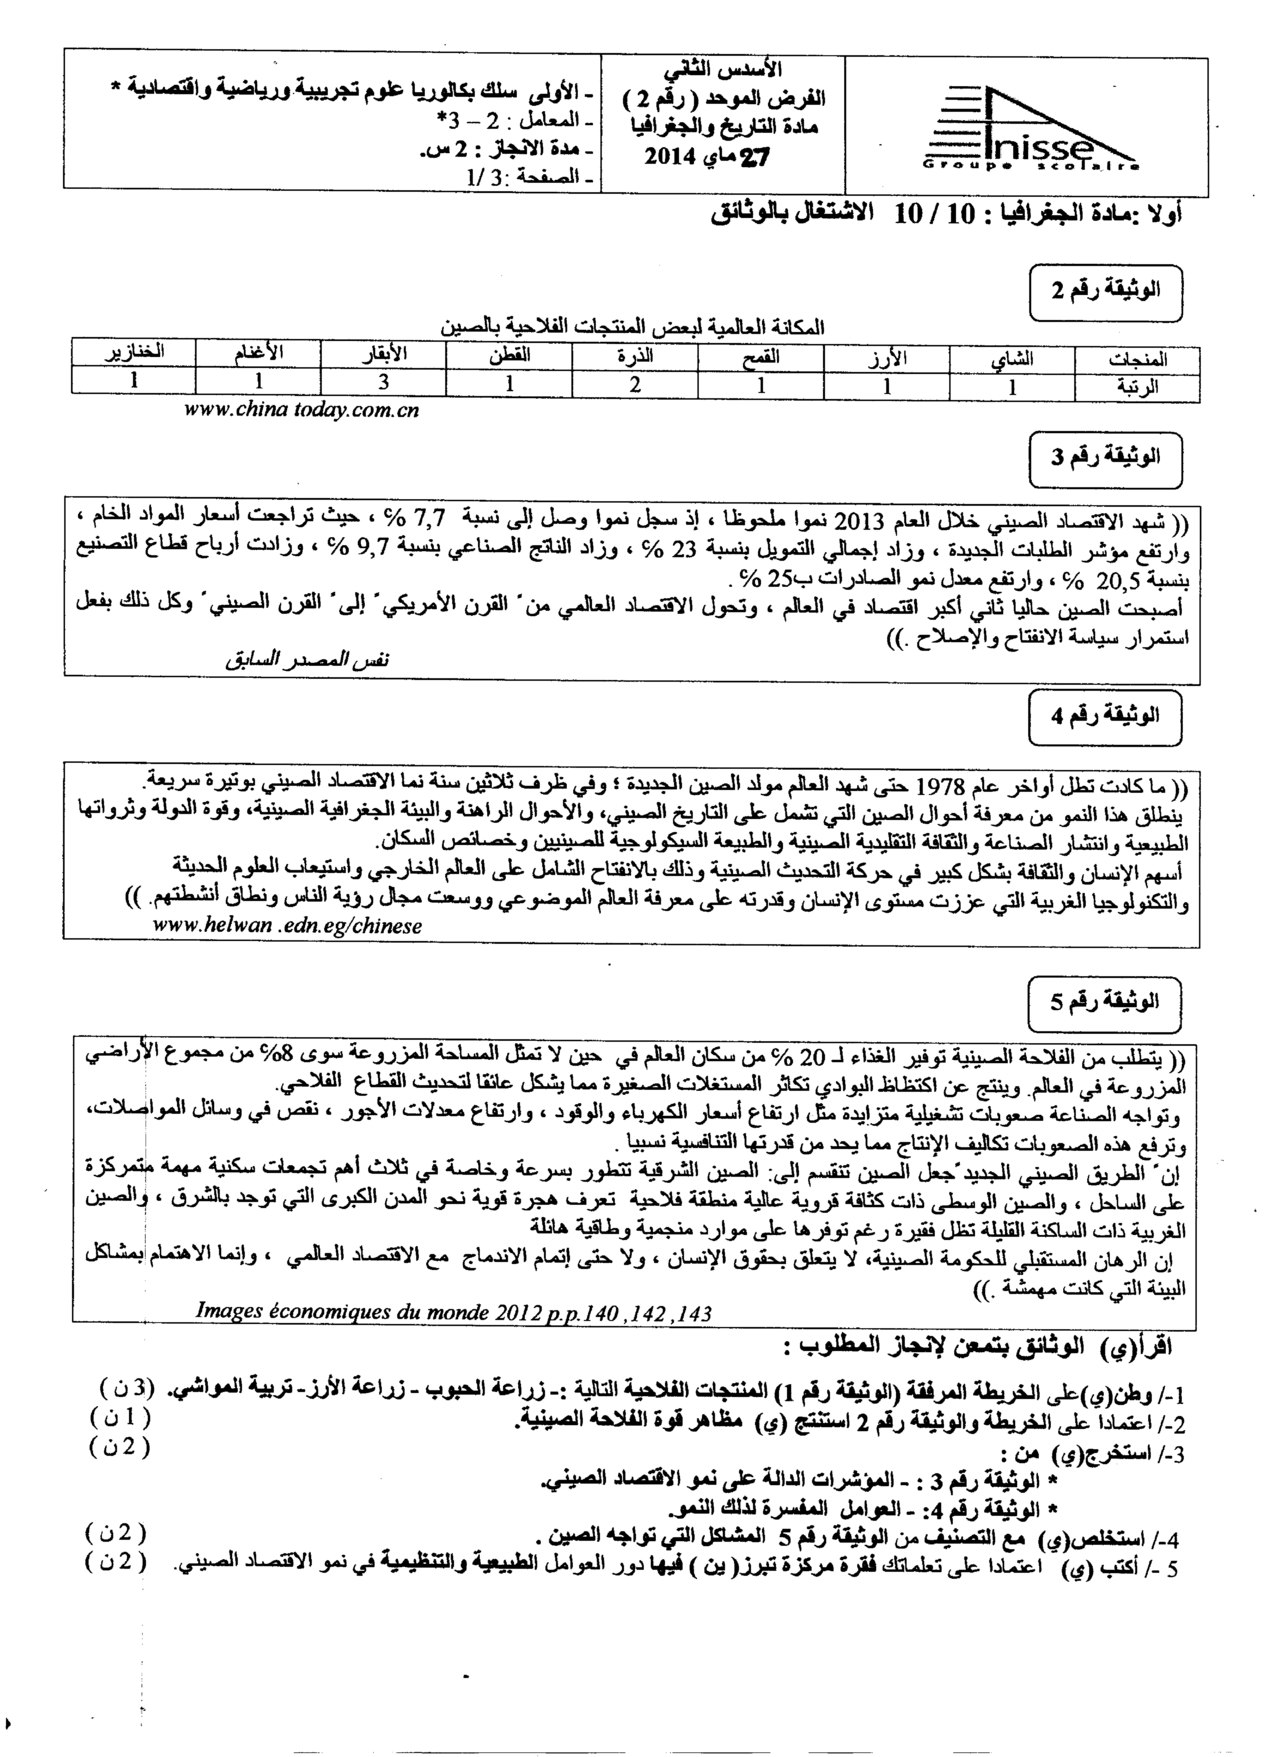 الأسدس الثاني
الفرض الموحد ( رقم 2 )
مادة التاريخ والجغرافيا
27 ماي 2014
- الأولى سلك بكالوريا علوم تجريبية ورياضية واقتصادية *
- المعامل : 2 – 3*
- مدة الانجاز : 2 س.
- الصفحة :3 /1
Anisse
Groupe scolaire
أولا :مادة الجغرافيا : 10 / 10 الاشتغال بالوثائق
الوثيقة رقم 2
المكانة العالمية لبعض المنتجات الفلاحية بالصين
المنتجات الشاي الأرز القمح الذرة القطن الأبقار الأغنام الخنازير
الرتبة 1 1 1 2 1 3 1 1
www.china today.com.cn
الوثيقة رقم 3
(( شهد الاقتصاد الصيني خلال العام 2013 نموا ملحوظا ، إذ سجل نموا وصل إلى نسبة 7,7 % ، حيث تراجعت أسعار المواد الخام ،
وارتفع مؤشر الطلبات الجديدة ، وزاد إجمالي التمويل بنسبة 23 % ، وزاد الناتج الصناعي بنسبة 9,7 % ، وزادت أرباح قطاع التصنيع
بنسبة 20,5 % ، وارتفع معدل نمو الصادرات ب25 % .
أصبحت الصين حاليا ثاني أكبر اقتصاد في العالم ، وتحول الاقتصاد العالمي من" القرن الأمريكي" إلى" القرن الصيني" وكل ذلك بفعل
استمرار سياسة الانفتاح والإصلاح .))
نفس المصدر السابق
الوثيقة رقم 4
(( ما كادت تطل أواخر عام 1978 حتى شهد العالم مولد الصين الجديدة ؛ وفي ظرف ثلاثين سنة نما الاقتصاد الصيني بوتيرة سريعة.
ينطلق هذا النمو من معرفة أحوال الصين التي تشمل على التاريخ الصيني، والأحوال الراهنة والبيئة الجغرافية الصينية، وقوة الدولة وثرواتها
الطبيعية وانتشار الصناعة والثقافة التقليدية الصينية والطبيعة السيكولوجية للصينيين وخصائص السكان.
أسهم الإنسان والثقافة بشكل كبير في حركة التحديث الصينية وذلك بالانفتاح الشامل على العالم الخارجي واستيعاب العلوم الحديثة
والتكنولوجيا الغربية التي عززت مستوى الإنسان وقدرته على معرفة العالم الموضوعي ووسعت مجال رؤية الناس ونطاق أنشطتهم. ))
www.helwan .edn.eg/chinese
الوثيقة رقم 5
(( يتطلب من الفلاحة الصينية توفير الغذاء لـ 20 % من سكان العالم في حين لا تمثل المساحة المزروعة سوى 8% من مجموع الأراضي
المزروعة في العالم. وينتج عن اكتظاظ البوادي تكاثر المستغلات الصغيرة مما يشكل عائقا لتحديث القطاع الفلاحي.
وتواجه الصناعة صعوبات تشغيلية متزايدة مثل ارتفاع أسعار الكهرباء والوقود ، وارتفاع معدلات الأجور ، نقص في وسائل المواصلات،
وترفع هذه الصعوبات تكاليف الإنتاج مما يحد من قدرتها التنافسية نسبيا .
إن" الطريق الصيني الجديد"جعل الصين تنقسم إلى: الصين الشرقية تتطور بسرعة وخاصة في ثلاث أهم تجمعات سكنية مهمة متمركزة
على الساحل ، والصين الوسطى ذات كثافة قروية عالية منطقة فلاحية تعرف هجرة قوية نحو المدن الكبرى التي توجد بالشرق ، والصين
الغربية ذات الساكنة القليلة تظل فقيرة رغم توفرها على موارد منجمية وطاقية هائلة
إن الرهان المستقبلي للحكومة الصينية، لا يتعلق بحقوق الإنسان ، ولا حتى إتمام الاندماج مع الاقتصاد العالمي ، وإنما الاهتمام بمشاكل
البيئة التي كانت مهمشة .))
Images économiques du monde 2012 p.p.140 ,142 ,143
اقرأ(ي) الوثائق بتمعن لإنجاز المطلوب :
1-/ وطن(ي)على الخريطة المرفقة (الوثيقة رقم 1) المنتجات الفلاحية التالية :- زراعة الحبوب - زراعة الأرز- تربية المواشي. (3 ن )
2-/ اعتمادا على الخريطة والوثيقة رقم 2 استنتج (ي) مظاهر قوة الفلاحة الصينية. ( 1ن )
3-/ استخرج(ي) من : ( 2 ن )
* الوثيقة رقم 3 : - المؤشرات الدالة على نمو الاقتصاد الصيني.
* الوثيقة رقم 4: - العوامل المفسرة لذلك النمو.
4-/ استخلص(ي) مع التصنيف من الوثيقة رقم 5 المشاكل التي تواجه الصين . ( 2 ن )
5 -/ أكتب (ي) اعتمادا على تعلماتك فقرة مركزة تبرز( ين ) فيها دور العوامل الطبيعية والتنظيمية في نمو الاقتصاد الصيني. ( 2 ن )